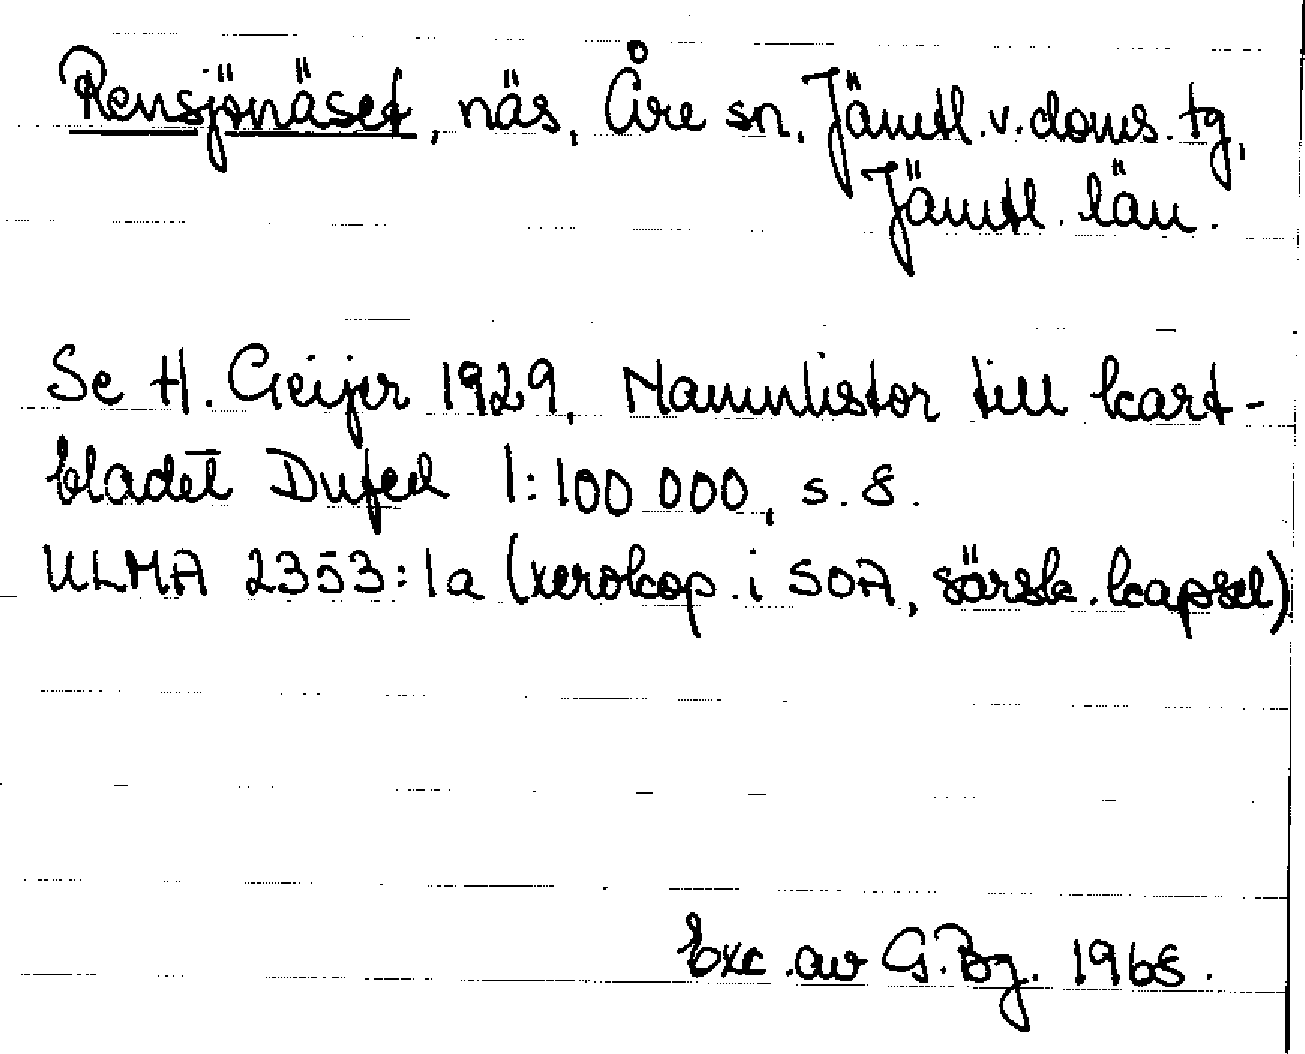 Rensjönäset, näs, Åre sn, Jämtl.v.doms.tg,
Jämtl. län.
Se H. Geijer 1929, Namnlistor till kart-
bladet Dufed 1:100 000, s. 8.
ULMA 2353:1a (xerokop. i SOA, särsk. kapsel)
Exc. av G.Bg. 1968.